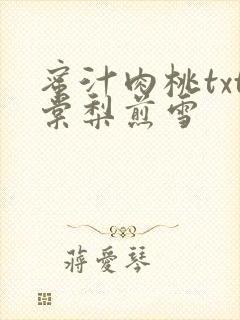 蜜汁肉桃txt
棠梨煎雪
蔣愛琴